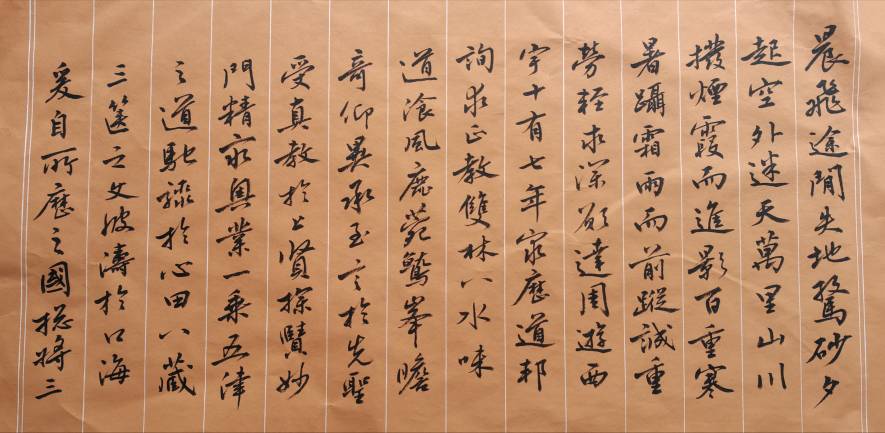 晨飛途閒失地驚砂夕
起空外迷天萬里山川
撥煙霞而進影百重寒
暑躡霜雨而前蹤誠重
勞輕求深願達周遊西
宇十有七年窮歷道邦
詢求正教雙林八水味
道湌風鹿菀鷲峯瞻
奇仰異承至言於先聖
受真教於上賢探賾妙
門精窮奧業一乘五律
之道馳驟於心田八藏
三篋之文波濤於口海
爰自所歷之國總將三